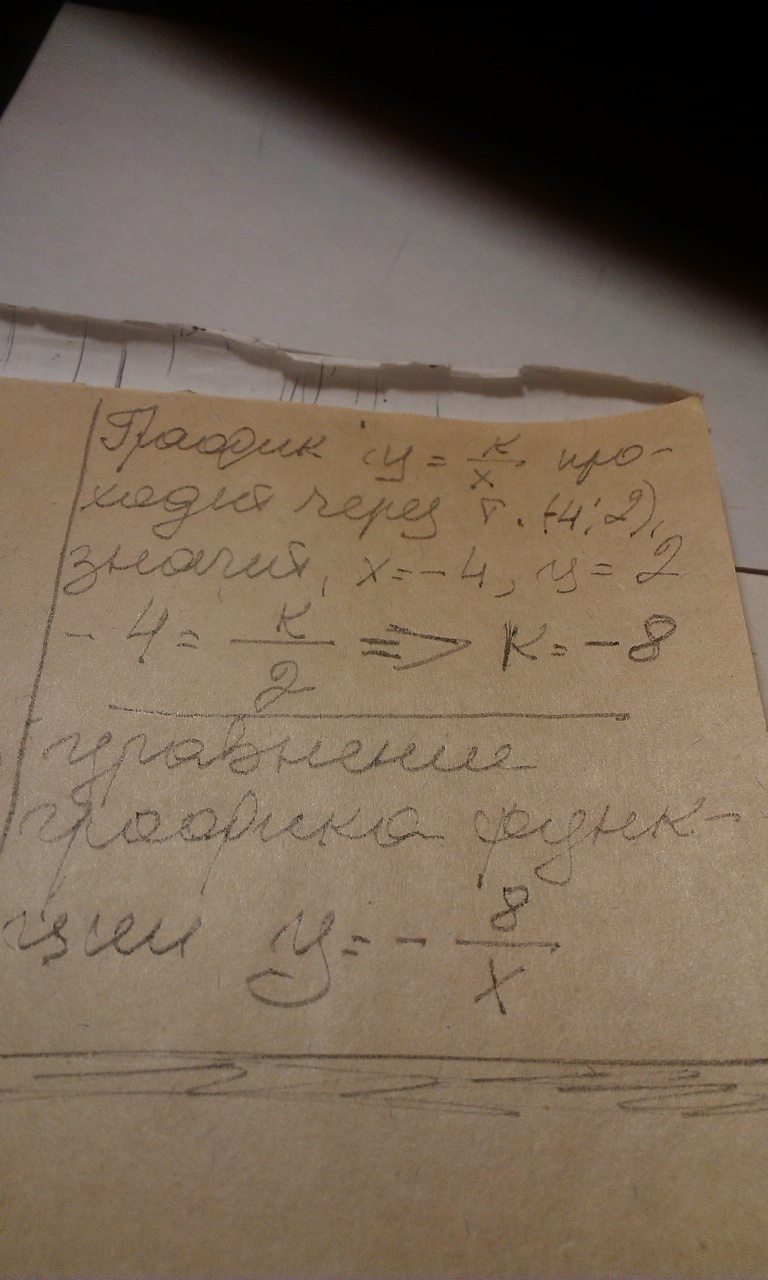 График y = к/х про-
ходит через т. (-4; 2),
значит, х = -4, у = 2
- 4 = к/2 => к = -8
уравнение
графика функ-
ции у = - 8/х